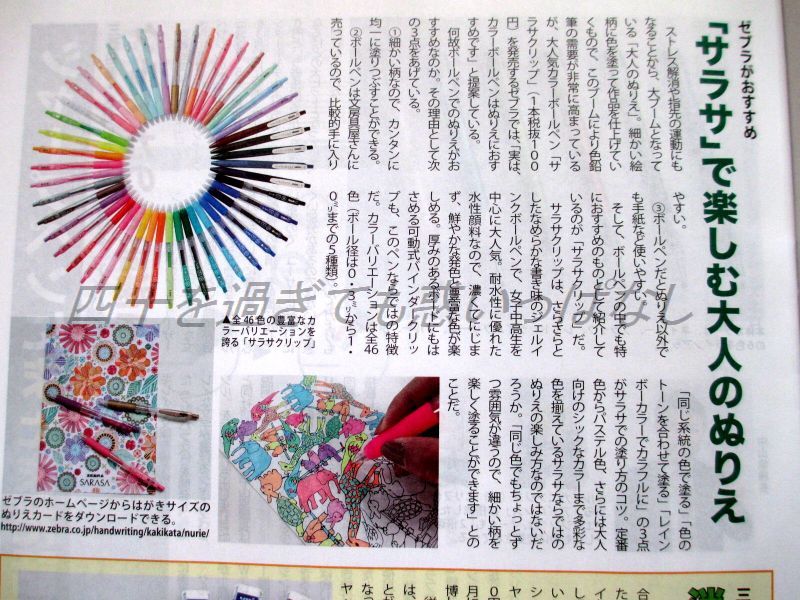 ゼブラがおすすめ
「サラサ」で楽しむ大人のぬりえ
ストレス解消や指先の運動にも
なることから、大ブームとなって
いる「大人のぬりえ」。細かい絵
柄に色を塗って作品を仕上げてい
くもので、このブームにより色鉛
筆の需要が非常に高まっている
が、大人気カラーボールペン「サ
ラサクリップ」（1本税抜100
円）を発売するゼブラでは「実は、
カラーボールペンはぬりえにおす
すめです」と提案している。
何故ボールペンでのぬりえがお
すすめなのか。その理由として次
の3点をあげている。
①細かい柄なので、カンタンに
均一に塗りつぶすことができる。
②ボールペンは文房具屋さんに
売っているので、比較的手に入り
やすい。
③ボールペンだとぬりえ以外で
も手紙など使いやすい。
そして、ボールペンの中でも特
におすすめのものとして紹介して
いるのが「サラサクリップ」だ。
サラサクリップは、さらさらと
したなめらかな書き味のジェルイ
ンクボールペンで、女子中高生を
中心に大人気。耐水性に優れた
水性顔料なので、濃くてにじま
ず、鮮やかな発色と豊富な色が楽
しめる。厚みのあるボードにもは
さめる可動式バインダークリッ
プも、このペンならではの特徴
だ。カラーバリエーションは全46
色（ボール径は0・3㍉から1・
0㍉までの5種類）。
「同じ系統の色で塗る」「色の
トーンを合わせて塗る」「レイン
ボーカラーでカラフルに」の3点
がサラサでの塗り方のコツ。定番
色からパステル色、さらには大人
向けのシックなカラーまで多彩な
色を揃えているサラサならではの
ぬりえの楽しみ方なのではないだ
ろうか。「同じ色でもちょっとず
つ雰囲気が違うので、細かい柄を
楽しく塗ることができます」との
ことだ。
▲全46色の豊富なカ
ラーバリエーションを
誇る「サラサクリップ」
ZEBRA
SARASA
ゼブラのホームページからはがきサイズの
ぬりえカードをダウンロードできる。
http://www.zebra.co.jp/handwriting/kakikata/nurie/
四十を過ぎても惑いっぱなし